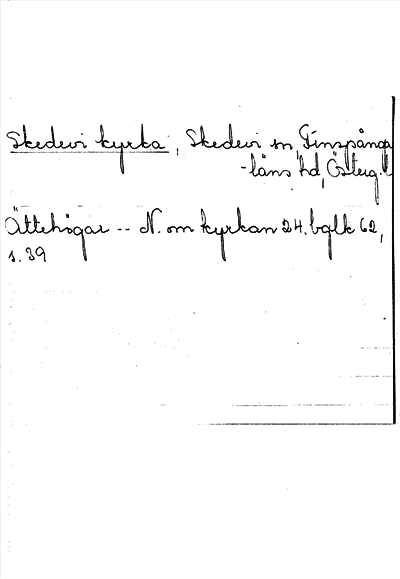 Skedevi kyrka, Skedevi sn, Finspånga
-läns hd, Österg.l
Ättehögar -- N. om kyrkan 24. bglk 62,
s. 39